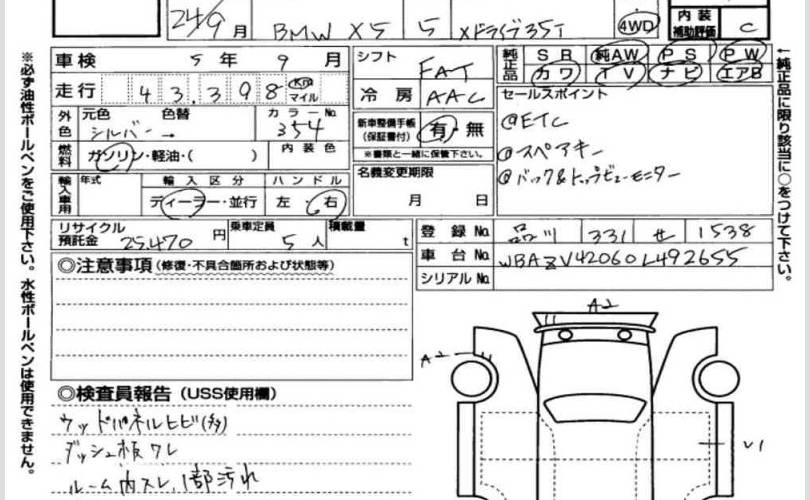 24/9 月 BMW X5 5 Xドライブ35I 4WD
内装 補助評価 C
車検 5 年 9 月 シフト FAT
純正品 SR 純AW PS PW
カワ TV ナビ エアB
走行 43,398 Km マイル 冷房 AAC
セールスポイント
外色 元色 色替 カラーNo.
シルバー → 354
新車整備手帳 (保証書付) 有・無
※書類と一緒に保管下さい。
@ETC
燃料 ガソリン・軽油・( ) 内装色
@スペアキー
@バック&トップビューモニター
輸入車用 年式 輸入区分 ハンドル
ディーラー・並行 左・右
名義変更期限
月 日
リサイクル預託金 25,470 円 乗車定員 5 人 積載量 t
登録No. 品川 331 せ 1538
車台No. WBAZV42060L492655
シリアルNo.
◎注意事項(修復・不具合箇所および状態等)
◎検査員報告(USS使用欄)
ウッドパネルヒビ(多)
ダッシュ板ワレ
ルーム内スレ、1部汚れ
A2
A2
U1
※必ず油性ボールペンをご使用下さい。水性ボールペンは使用できません。
←純正品に限り該当に○をつけて下さい。